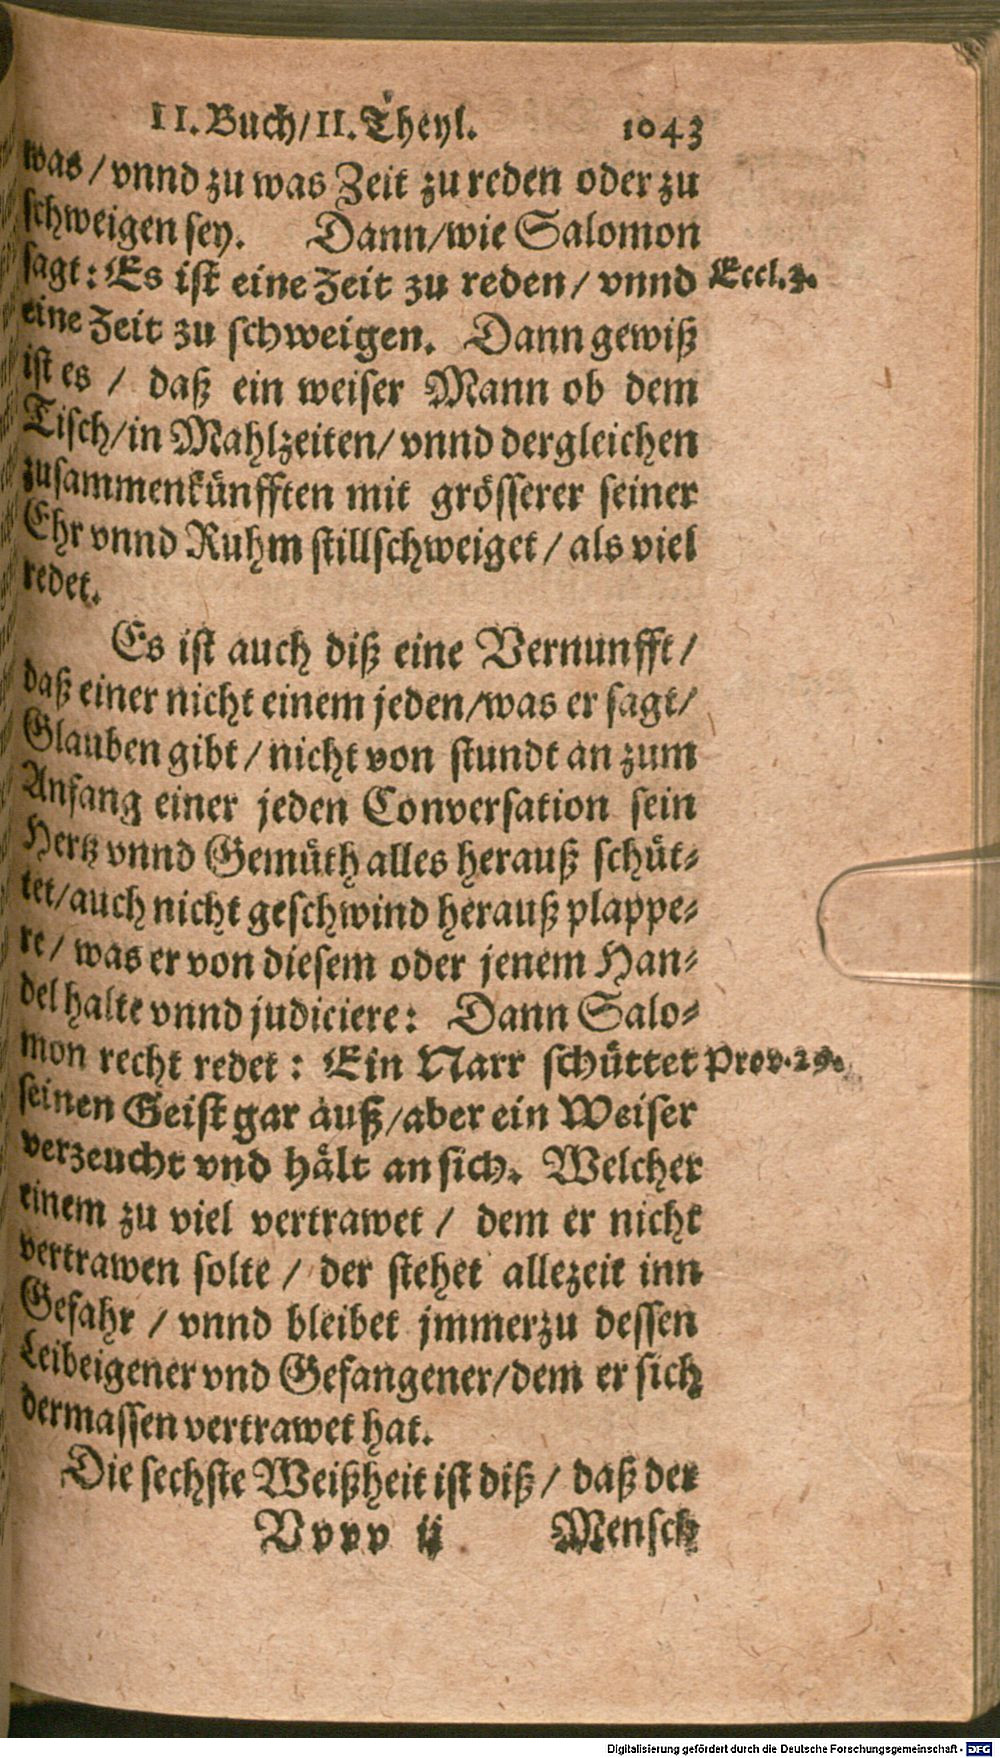 II. Buch/ II. Theyl. 1043
was / vnnd zu was Zeit zu reden oder zu
schweigen sey. Dann/wie Salomon
sagt: Es ist eine Zeit zu reden/ vnnd Eccl. 3.
eine Zeit zu schweigen. Dann gewiß
ist es / daß ein weiser Mann ob dem
Tisch/in Mahlzeiten/ vnnd dergleichen
zusammenkünfften mit grösserer seiner
Ehr vnnd Ruhm stillschweiget / als viel
redet.
Es ist auch diß eine Vernunfft/
daß einer nicht einem jeden/was er sagt/
Glauben gibt / nicht von stundt an zum
Anfang einer jeden Conversation sein
Hertz vnnd Gemüth alles herauß schüt-
tet/auch nicht geschwind herauß plappe-
re/ was er von diesem oder jenem Han-
del halte vnnd judiciere: Dann Salo-
mon recht redet: Ein Narr schüttet Prov. 29.
seinen Geist gar auß/aber ein Weiser
verzeucht vnd hält an sich. Welcher
einem zu viel vertrawet / dem er nicht
vertrawen solte / der stehet allezeit inn
Gefahr / vnnd bleibet jmmerzu dessen
Leibeigener vnd Gefangener/dem er sich
dermassen vertrawet hat.
Die sechste Weißheit ist diß/ daß der
Vvvv ij Mensch
Digitalisierung gefördert durch die Deutsche Forschungsgemeinschaft - DFG